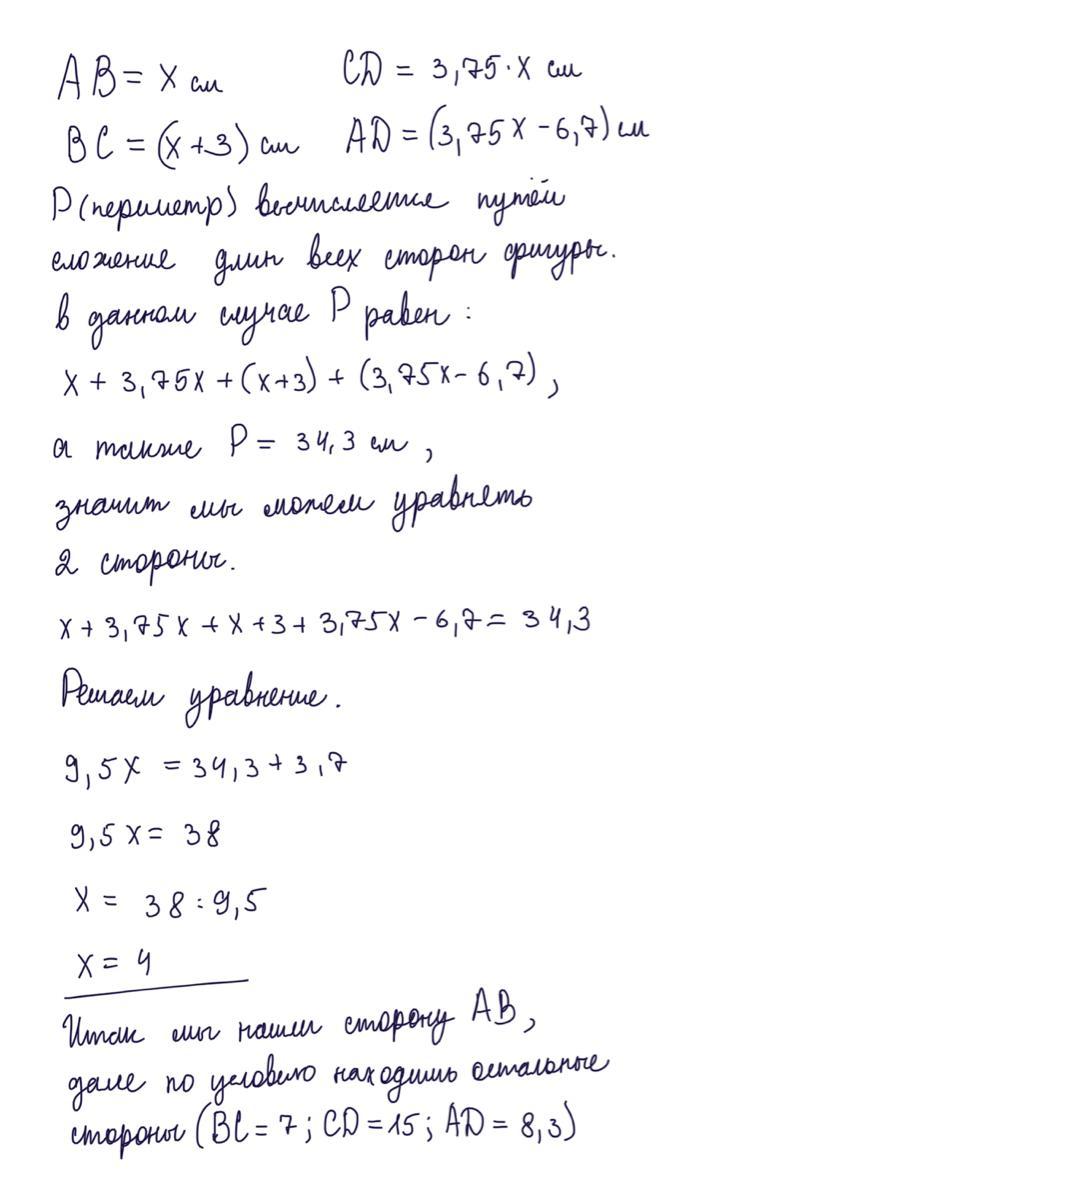 AB = x см
CD = 3,75·x см
BC = (x+3) см
AD = (3,75x - 6,7) см
P(периметр) вычисляется путём
сложение длин всех сторон фигуры.
в данном случае P равен:
x + 3,75x + (x+3) + (3,75x - 6,7),
а также P = 34,3 см,
значит мы можем уравнять
2 стороны.
x + 3,75x + x + 3 + 3,75x - 6,7 = 34,3
Решаем уравнение.
9,5x = 34,3 + 3,7
9,5x = 38
x = 38 : 9,5
x = 4
Итак мы нашли сторону AB,
далее по условию находишь остальные
стороны (BC = 7; CD = 15; AD = 8,3)